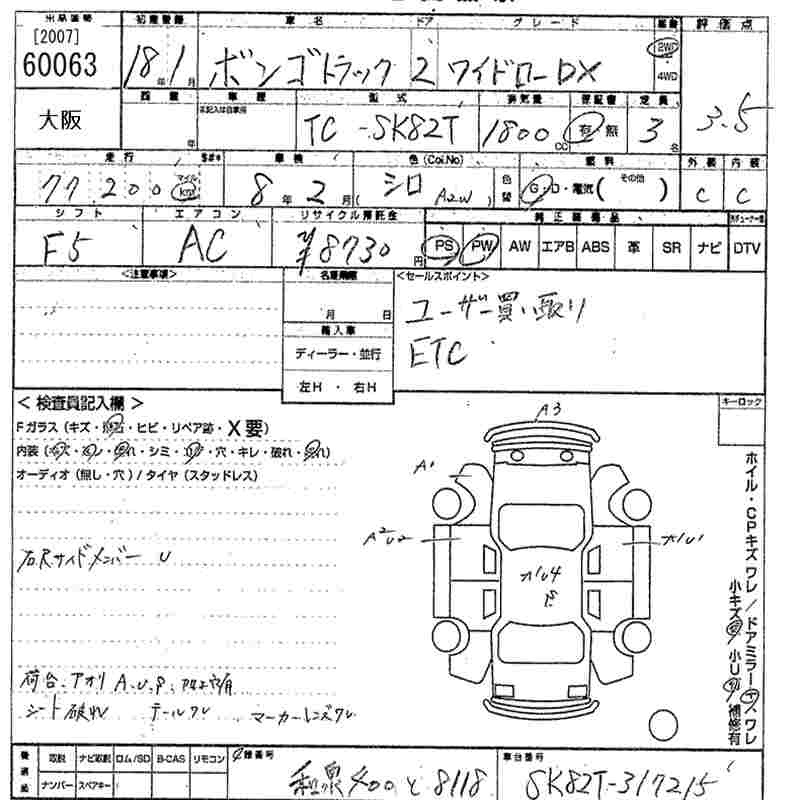 出品番号 初度登録 車名 ドア グレード 駆動 評価点
[2007]
60063 18年1月 ボンゴトラック 2 ワイドローDX 2WD 4WD 3.5
大阪 年 車歴 未記入は自家用 型式 TC-SK82T 排気量 1800cc 保証書 有・無 定員 3名
走行 77200 マイル km 車検 8年2月 色(Coi.No) シロ (A2W) 色替 燃料 G・D・電気( その他 ) 外装 C 内装 C
シフト エアコン リサイクル預託金 純正装備品
F5 AC ¥8730円 PS PW AW エアB ABS 革 SR ナビ DTV
<注意事項> 名変期限 <セールスポイント>
月 日 ユーザー買い取り
輸入車 ETC
ディーラー・並行
左H ・ 右H
<検査員記入欄> キーロック
Fガラス(キズ・飛石・ヒビ・リペア跡・X要)
内装(キズ・・汚れ・シミ・・穴・キレ・破れ・)
オーディオ(無し・穴)/タイヤ(スタッドレス)
A3
A1
A2U2
オ1U1
オ1U4
P
右Rサイドメンバー U
荷台、アオリ A、U、P、
シート破れ テールワレ マーカーレンズワレ
ホイル・CPキズワレ/ドアミラーキズワレ
小キズ 小U 補修有
取説 ナビ取説 ロム/SD B-CAS リモコン
ナンバー スペアキー
登録番号 和泉400と8118
車台番号 SK82T-317215